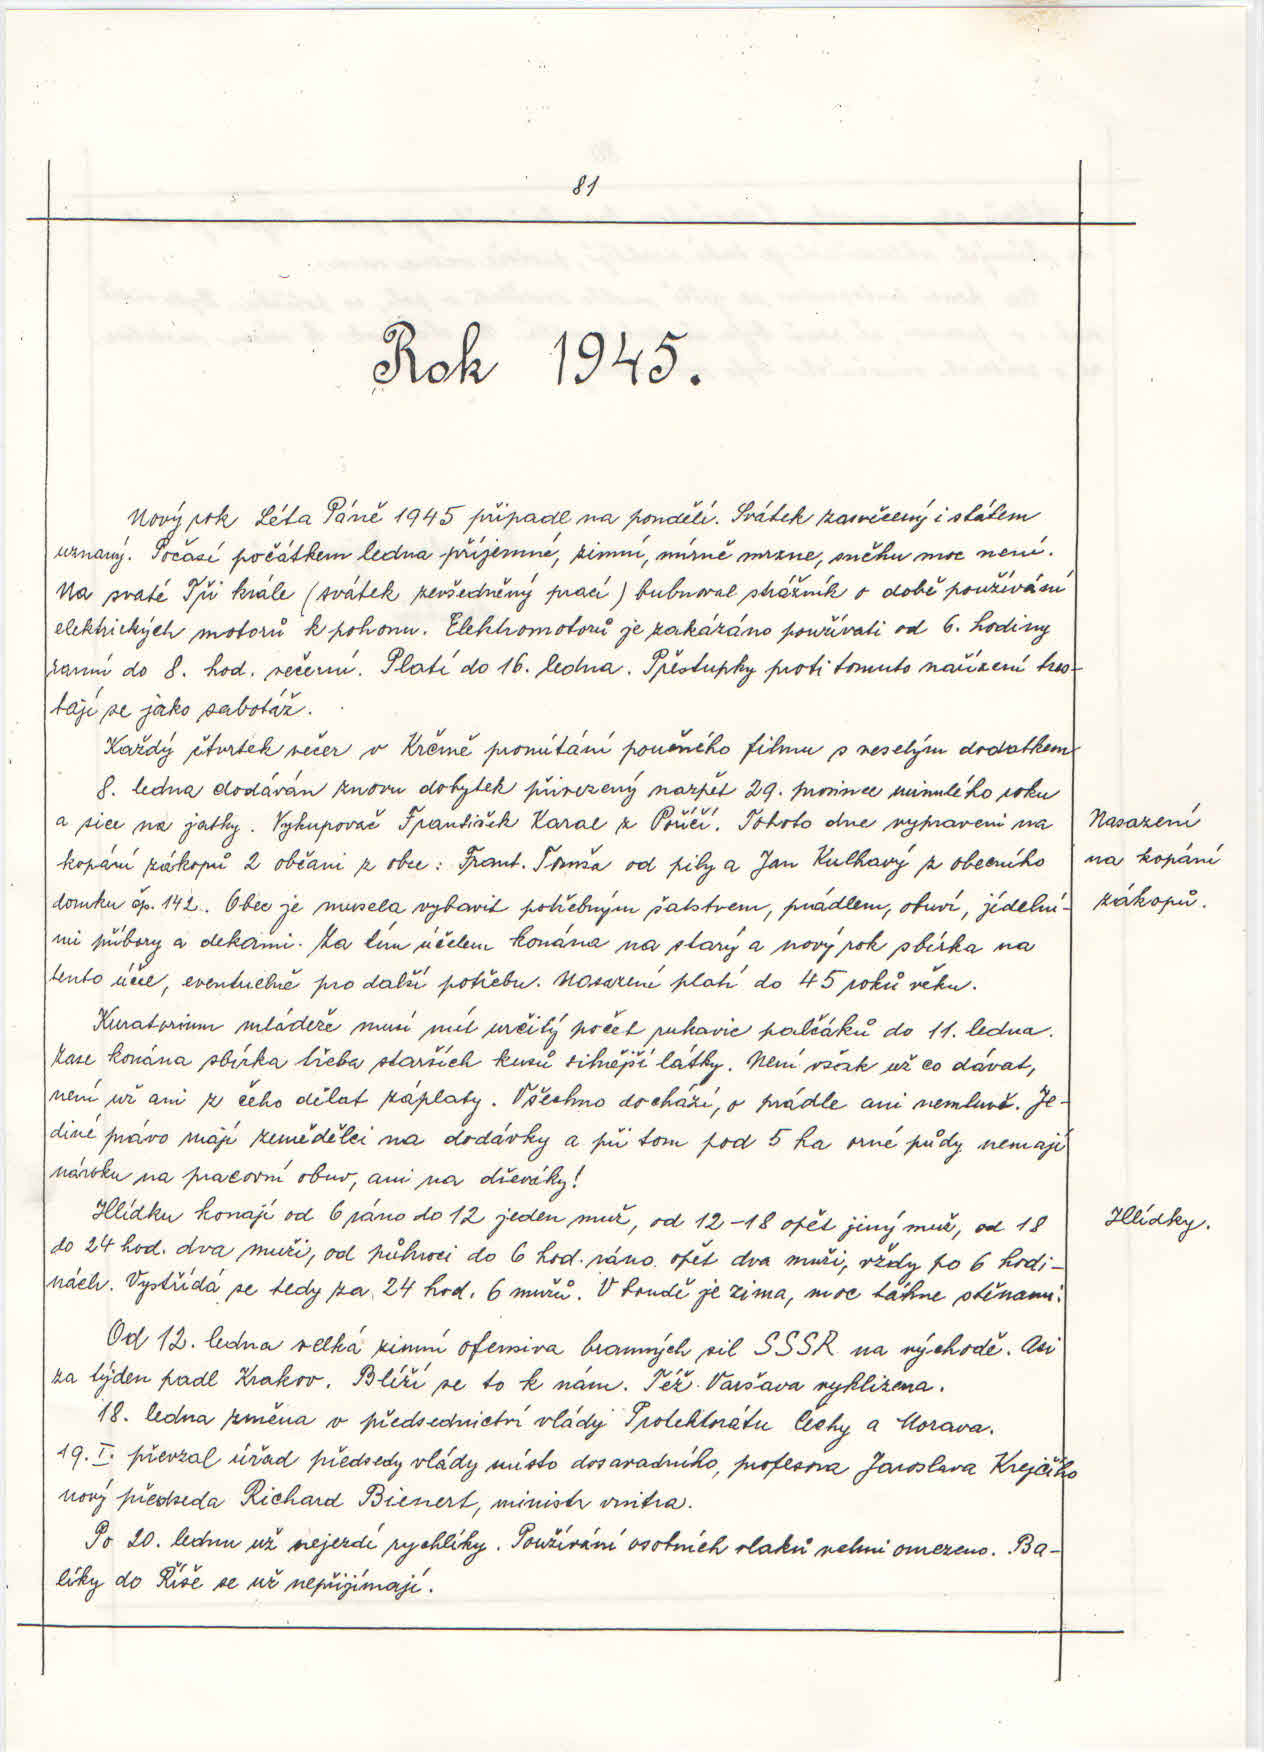 81
Rok 1945.
Nový rok Léta Páně 1945 připadl na pondělí. Svátek zasvěcený i státem
uznaný. Počasí počátkem ledna příjemné, zimní, mírně mrzne, sněhu moc není.
Na svaté Tři krále (svátek zevšedněný prací) bubnoval strážník o době používání
elektrických motorů k pohonu. Elektromotorů je zakázáno používati od 6. hodiny
ranní do 8. hod. večerní. Platí do 16. ledna. Přestupky proti tomuto nařízení tres-
tají se jako sabotáž.
Každý čtvrtek večer v Krčmě promítání poučného filmu s veselým dodatkem
8. ledna dodáván znovu dobytek přivezený nazpět 29. prosince minulého roku
a sice na jatky. Vykupovač František Karae z Poříčí. Tohoto dne vypraveni na
kopání zákopů 2 občani z obce: Frant. Tomša od pily a Jan Kulhavý z obecního
domku čp. 142. Obec je musela vybavit potřebným šatstvem, prádlem, obuví, jídelní-
mi příbory a dekami. Za tím účelem konána na starý a nový rok sbírka na
tento účel, eventuelně pro další potřebu. Nasazení platí do 45 roků věku.
Nasazení
na kopání
zákopů.
Kuratorium mládeže musí mít určitý počet rukavic palčáků do 11. ledna.
Zase konána sbírka třeba starších kusů silnější látky. Není však už co dávat,
není už ani z čeho dělat záplaty. Všechno dochází, o prádle ani nemluvě. Je-
diné právo mají zemědělci na dodávky a při tom pod 5 ha orné půdy nemají
nároku na pracovní obuv, ani na dřeváky!
Hlídku konají od 6 ráno do 12 jeden muž, od 12-18 opět jiný muž, od 18
do 24 hod. dva muži, od půlnoci do 6 hod. ráno opět dva muži, vždy po 6 hodi-
nách. Vystřídá se tedy za 24 hod. 6 mužů. V boudě je zima, moc táhne stěnami.
Hlídky.
Od 12. ledna velká zimní ofensiva branných sil SSSR na východě. Asi
za týden padl Krakov. Blíží se to k nám. Též Varšava vyklizena.
18. ledna změna v předsednictví vlády Protektorátu Čechy a Morava.
19. I. převzal úřad předsedy vlády místo dosavadního, profesora Jaroslava Krejčího
nový předseda Richard Bienert, ministr vnitra.
Po 20. lednu už nejezdí rychlíky. Používání osobních vlaků velmi omezeno. Ba-
líky do Říše se už nepřijímají.